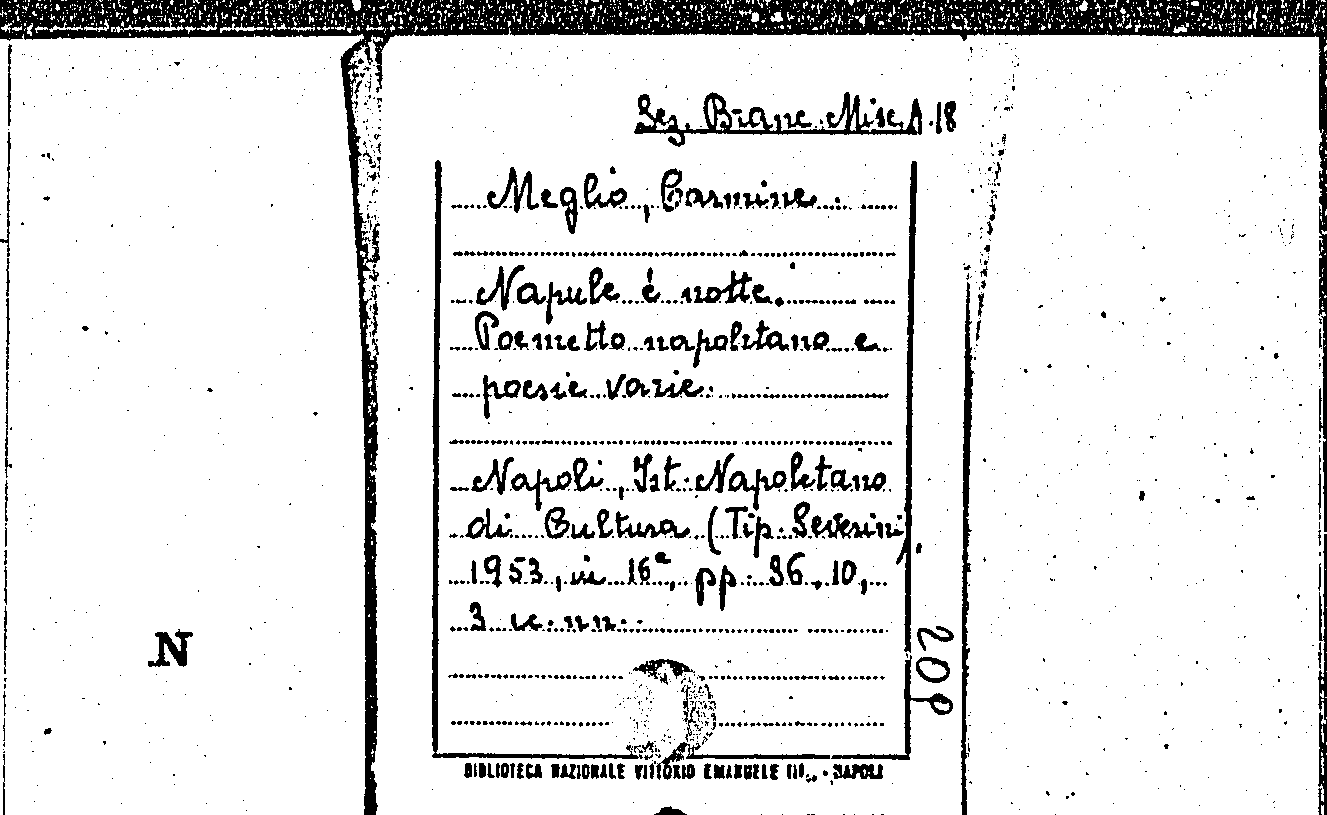 Sez. Branc. Misc. A. 18
Meglio, Carmine.
Napule é notte.
Poemetto napoletano e
poesie varie.
Napoli, Ist. Napoletano
di Cultura (Tip. Severini),
1953, in 16°, pp. 96, 10,
3 c. nn.
N
BIBLIOTECA NAZIONALE VITTORIO EMANUELE III - NAPOLI